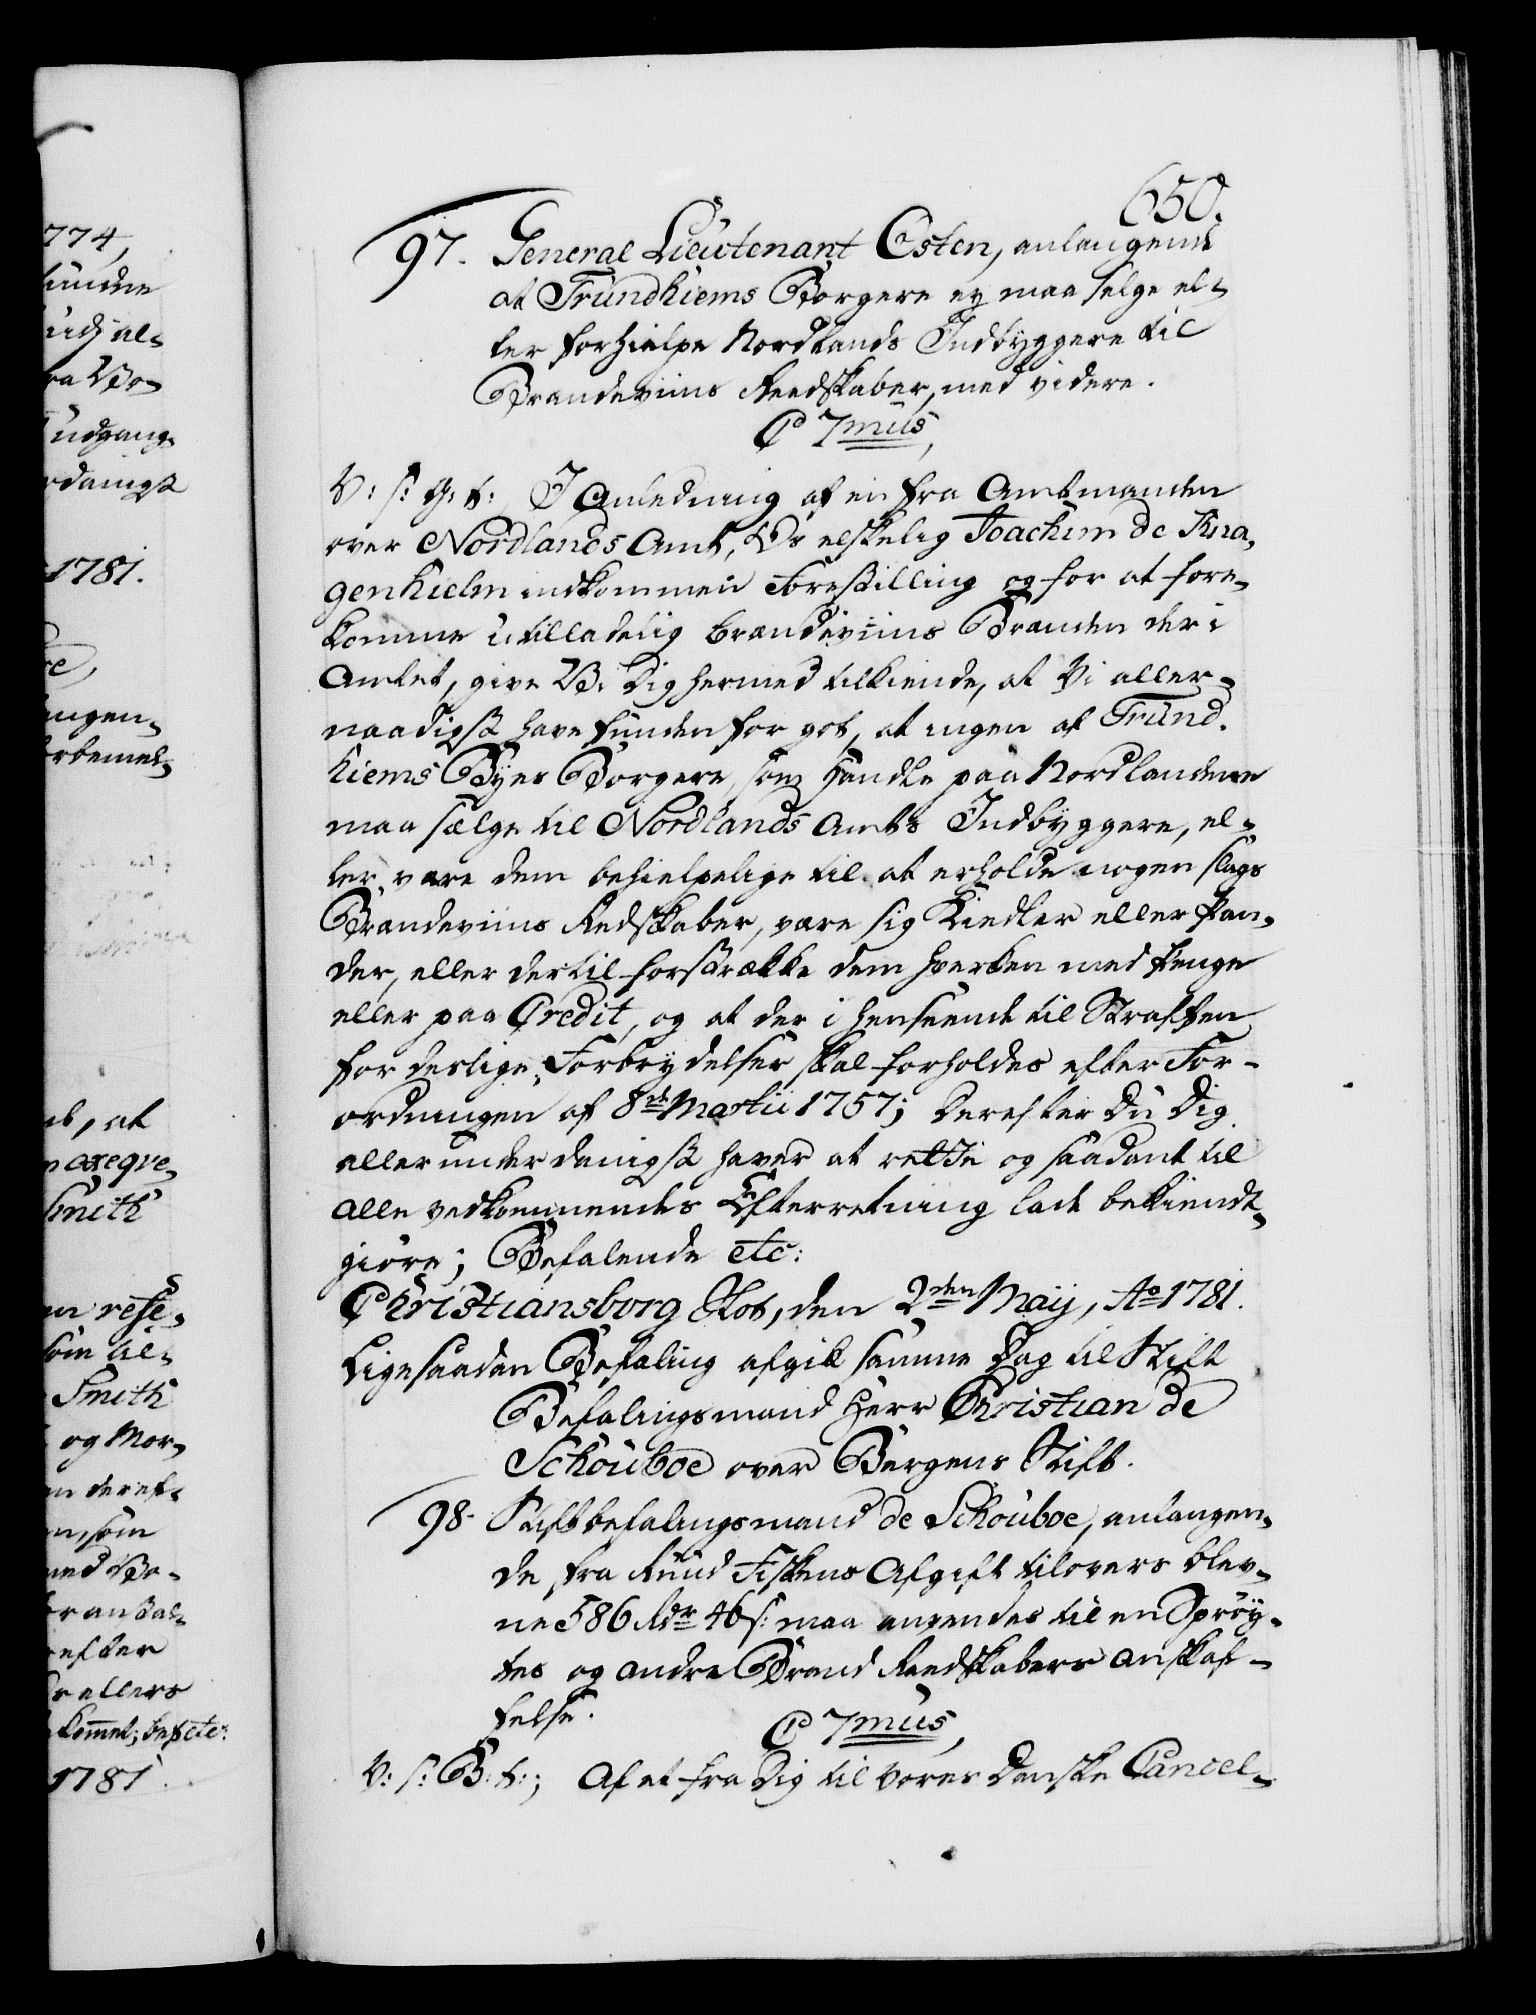 774,
-1781.
Smith
1781
650.
97. General Lieutenant Osten, anlangende
at Trundhiems Borgere ey maa selge el-
ler forhielpe Nordlands Indbyggere til
Brandeviins Reedskaber, med videre.
C 7mus,
V: s: G: t: I Anledning af en fra Amtmanden
over Nordlands Amt, Os elskelig Joachim de Kna-
genhielm indkommen Forestilling og for at fore-
komme utilladelig Brændeviins Brænden der i
Amtet, give Vi Dig hermed tilkiende, at Vi aller-
naadigst have funden for got, at ingen af Trund-
hiems Byes Borgere, som handle paa Nordlandene
maa sælge til Nordlands Amts Indbyggere, el-
ler være dem behielpelige til at erholde nogen slags
Brandeviins Redskaber, være sig Kiedler eller Pan-
der, eller dertil forstrække dem hverken med Penge
eller paa Credit, og at der i henseende til Straffen
for deslige Forbrydelser skal forholdes efter For-
ordningen af 8de Martii 1757; Derefter Du Dig
allerunderdanigst haver at rette og saadant til
alle vedkommendes Efterretning lade bekiendt-
giøre; Befalende etc:
Christiansborg Slot, den 2den Maij, Ao 1781.
Ligesaadan Befaling afgik samme Dag til Stift
Befalingsmand Herr Christian de
Schouboe over Bergens Stift.
98. Stiftbefalingsmand de Schouboe, anlangen-
de fra Ruud Fiskens Afgift tilovers blev-
ne 586 Rdr 46 s: maa anvendes til en Sprøy-
tes og andre Brand Reedskabers Anskaf-
felse.
C 7mus,
V: s: G: t:; Af et fra Dig til Vores Danske Cancel-